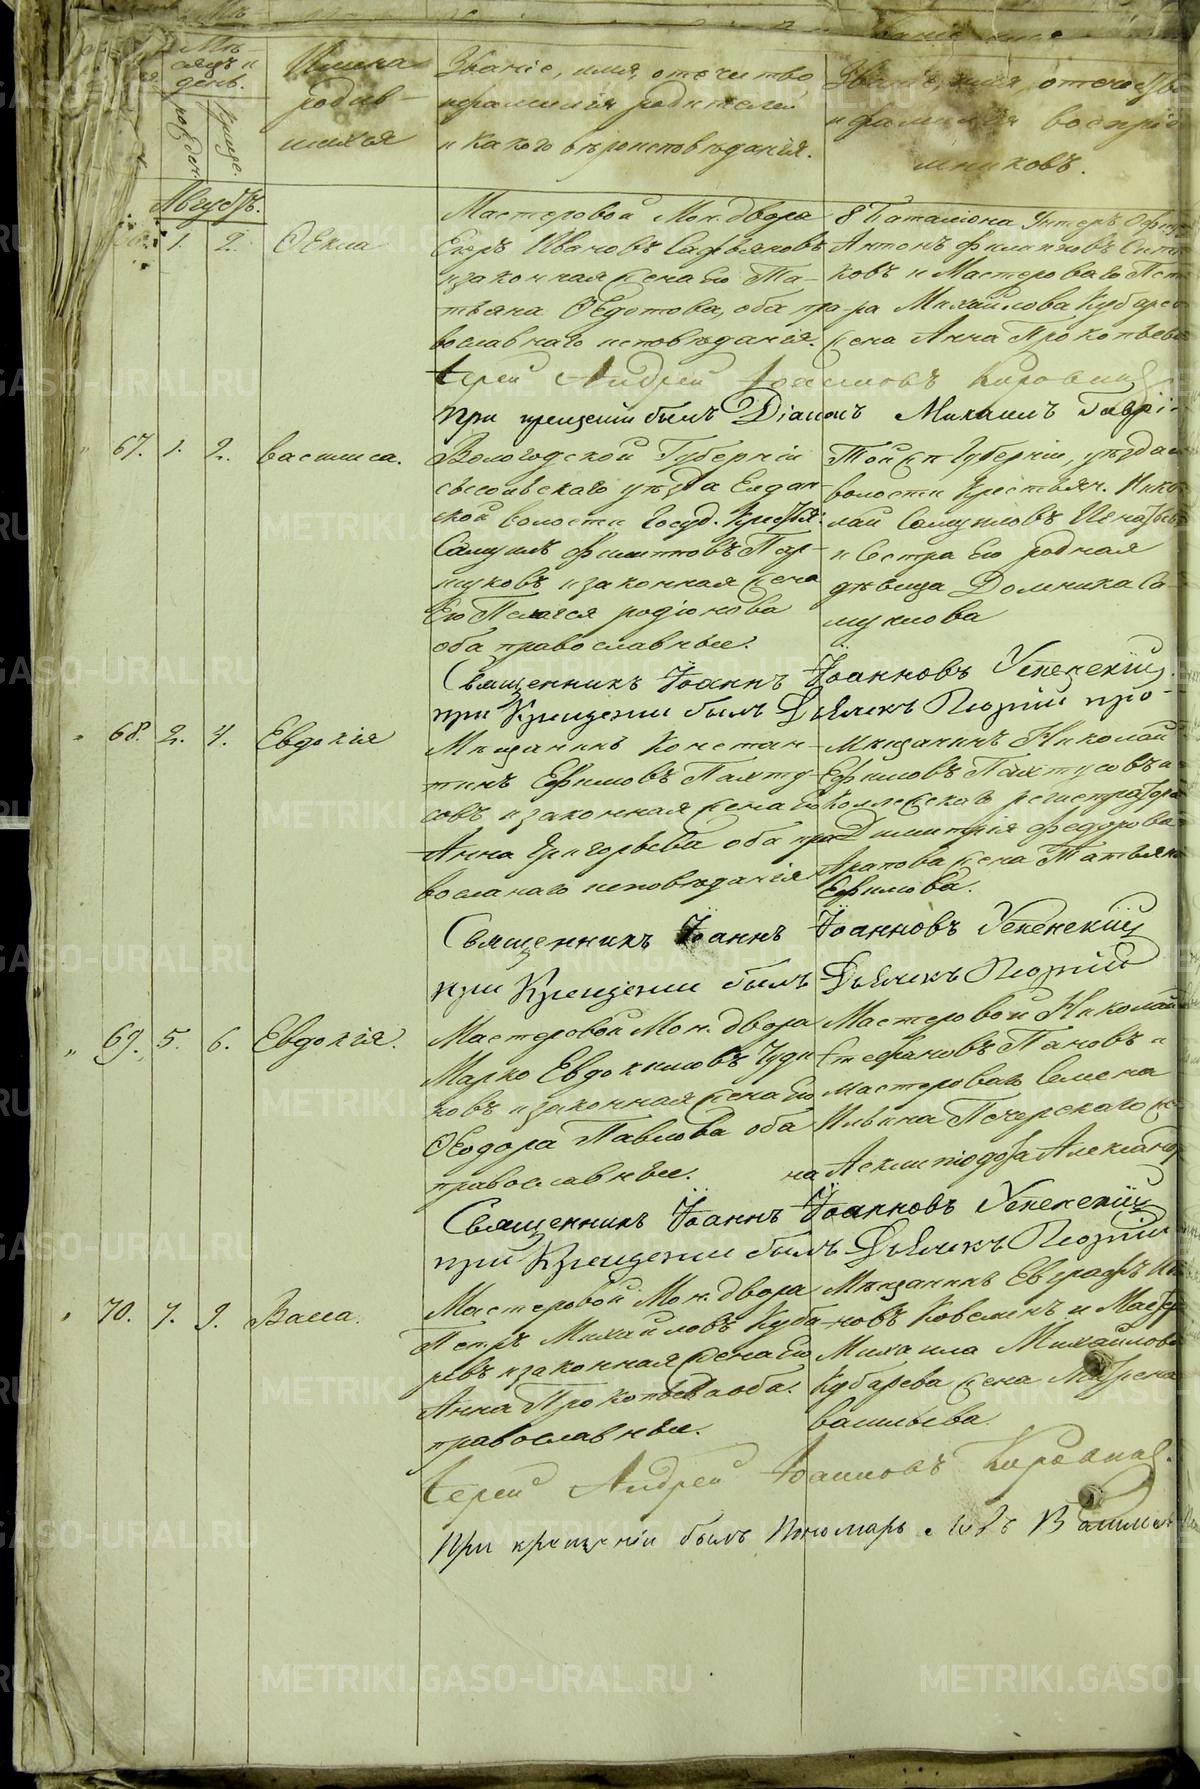 Мѣсяцъ и день.
рожден.
креще.
Имена родившихся
Званіе, имя, отечество и фамилія родителей и какого вѣроисповѣданія.
Званіе, имя, отечество и фамилія воспріемниковъ.
Августъ.
1. 2. Ѳекла
Мастеровой Мон. двора
Егоръ Ивановъ
и законная жена его Та-
тьяна Ѳедотова, оба пра-
вославнаго исповѣданія.
8 Баталіона Унтеръ Офиц
Антонъ Филиповъ
ковъ и Мастероваго Пет
ра Михайлова Кубарев
жена Анна Прокопьева
Іерей Андрей Іоанновъ
При крещеніи былъ Діаконъ Михаилъ Гаврі-
67. 1. 2. Василиса.
Вологодской Губерніи
уѣзда
ской волости Госуд. Крестья:
Самуилъ Филиповъ Пар-
шуковъ и законная жена
его Пелагея Родіонова
оба православные.
Той же Губерніи, уѣзда и
волости Крестьян. Нико
лай Самуиловъ
и Сестра его родная
дѣвица Домника Са-
муилова
Священникъ Іоаннъ Іоанновъ Успенскій.
при Крещеніи былъ Дьячекъ Георгій про-
68. 2. 4. Евдокія
Мѣщанинъ Констан-
тинъ Ефимовъ Пахту-
совъ и законная жена его
Анна Григорьева оба пра
вославнаго исповѣданія
Мѣщанинъ Николай
Ефимовъ Пахтусовъ и
Коллежскаго регистратора
Димитрія Федорова
Арапова жена Татьяна
Ефимова.
Священникъ Іоаннъ Іоанновъ Успенскій
при Крещеніи былъ Дьячекъ Георгій
69. 5. 6. Евдокія.
Мастеровой Мон. двора
Марко Евдокимовъ Чуди
ковъ и законная жена его
Ѳеодора Павлова оба
православные.
Мастеровой Николай
Стефановъ Пановъ и
мастероваго Семена
Ильина Печерскаго же
на Александр
Священникъ Іоаннъ Іоанновъ Успенскій
при Крещеніи былъ Дьячекъ Георгій
70. 7. 9. Васса.
Мастеровой Мон. двора
Петръ Михайловъ Куба
ревъ и законная жена его
Анна Прокопьева оба.
православные.
Мѣщанинъ Евграфъ Ив
новъ Ковелинъ и Мастер
Михаила Михайлова
Кубарева жена Матрена
Васильева.
Іерей Андрей Іоанновъ
При крещеніи былъ Пономарь
METRIKI.GASO-URAL.RU